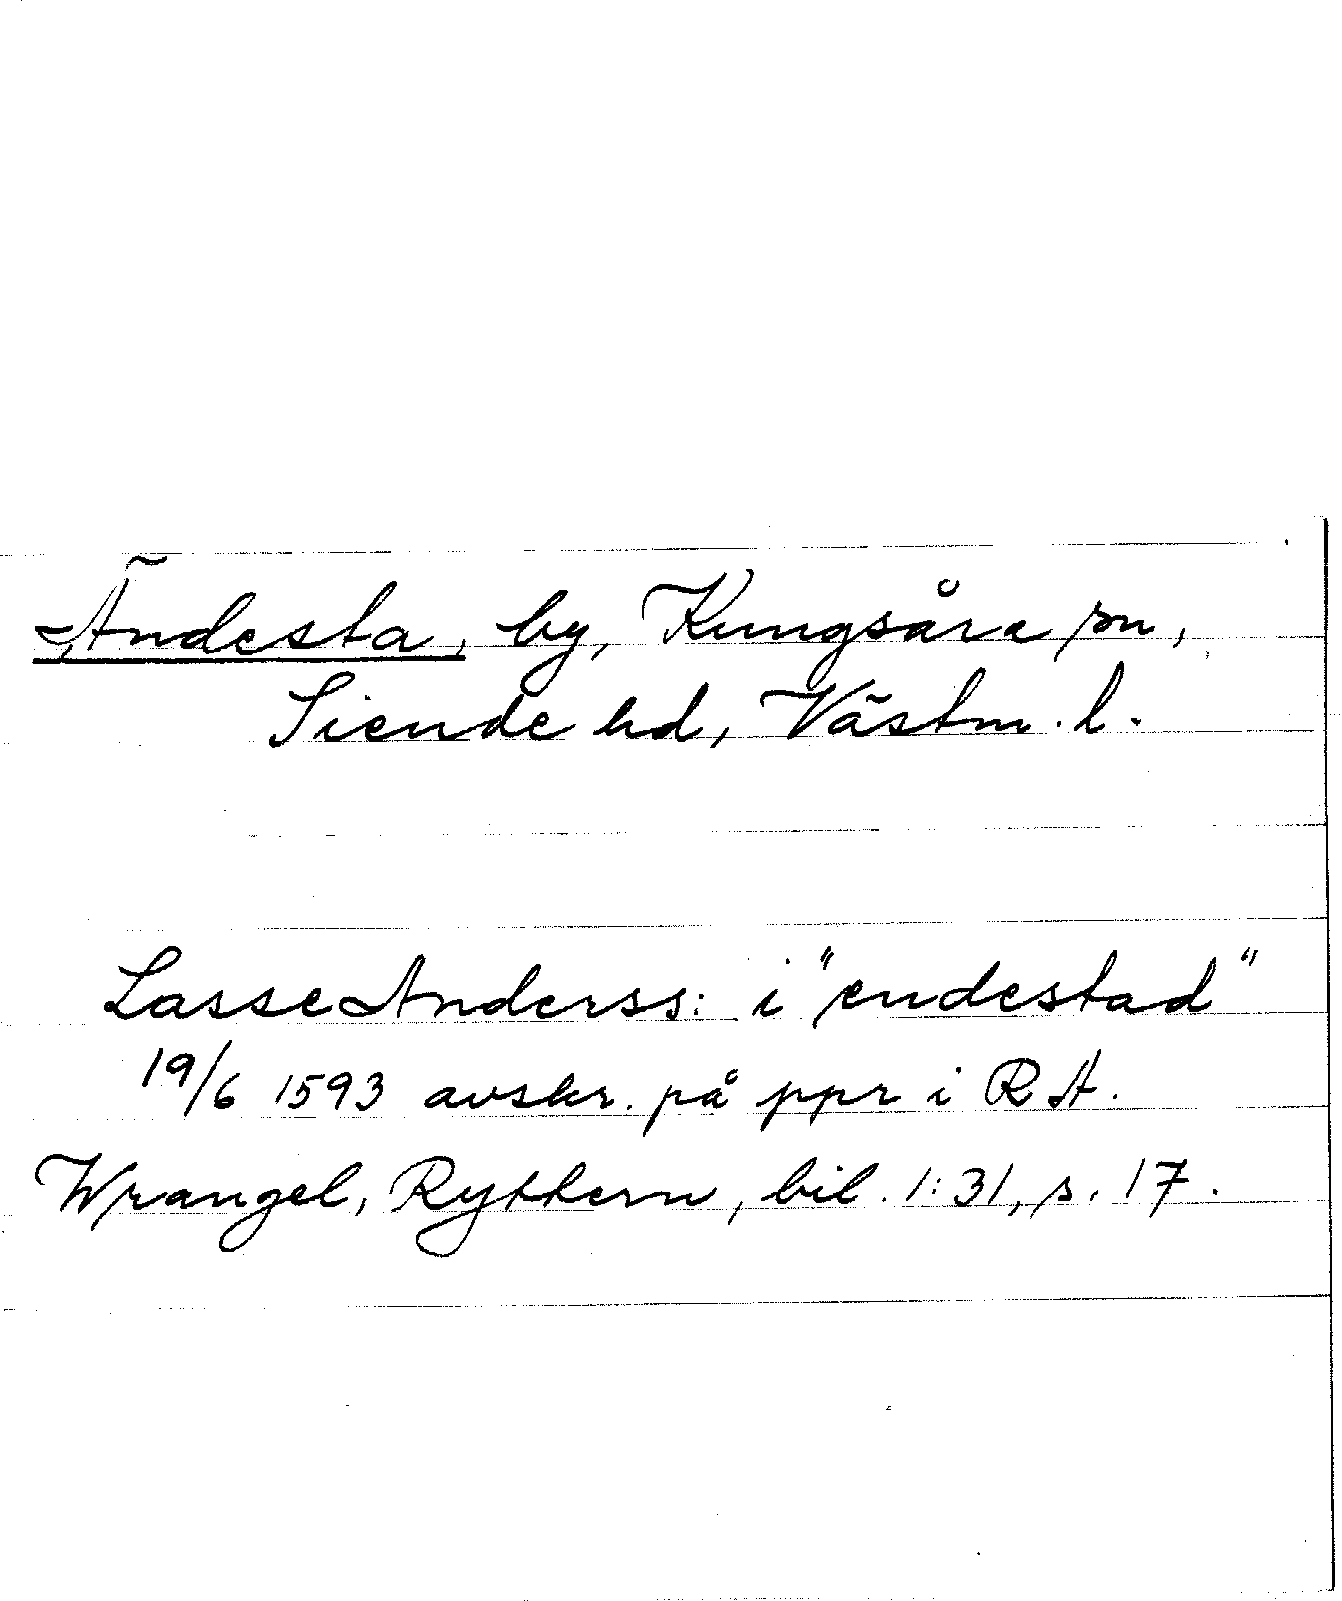 Ändesta, by, Kungsåra sn,
Siende hd, Västm. l.
Lasse Anderss: i "endestad"
19/6 1593 avskr. på ppr i RA.
Wrangel, Rytthern, bil. 1:31, s. 17.